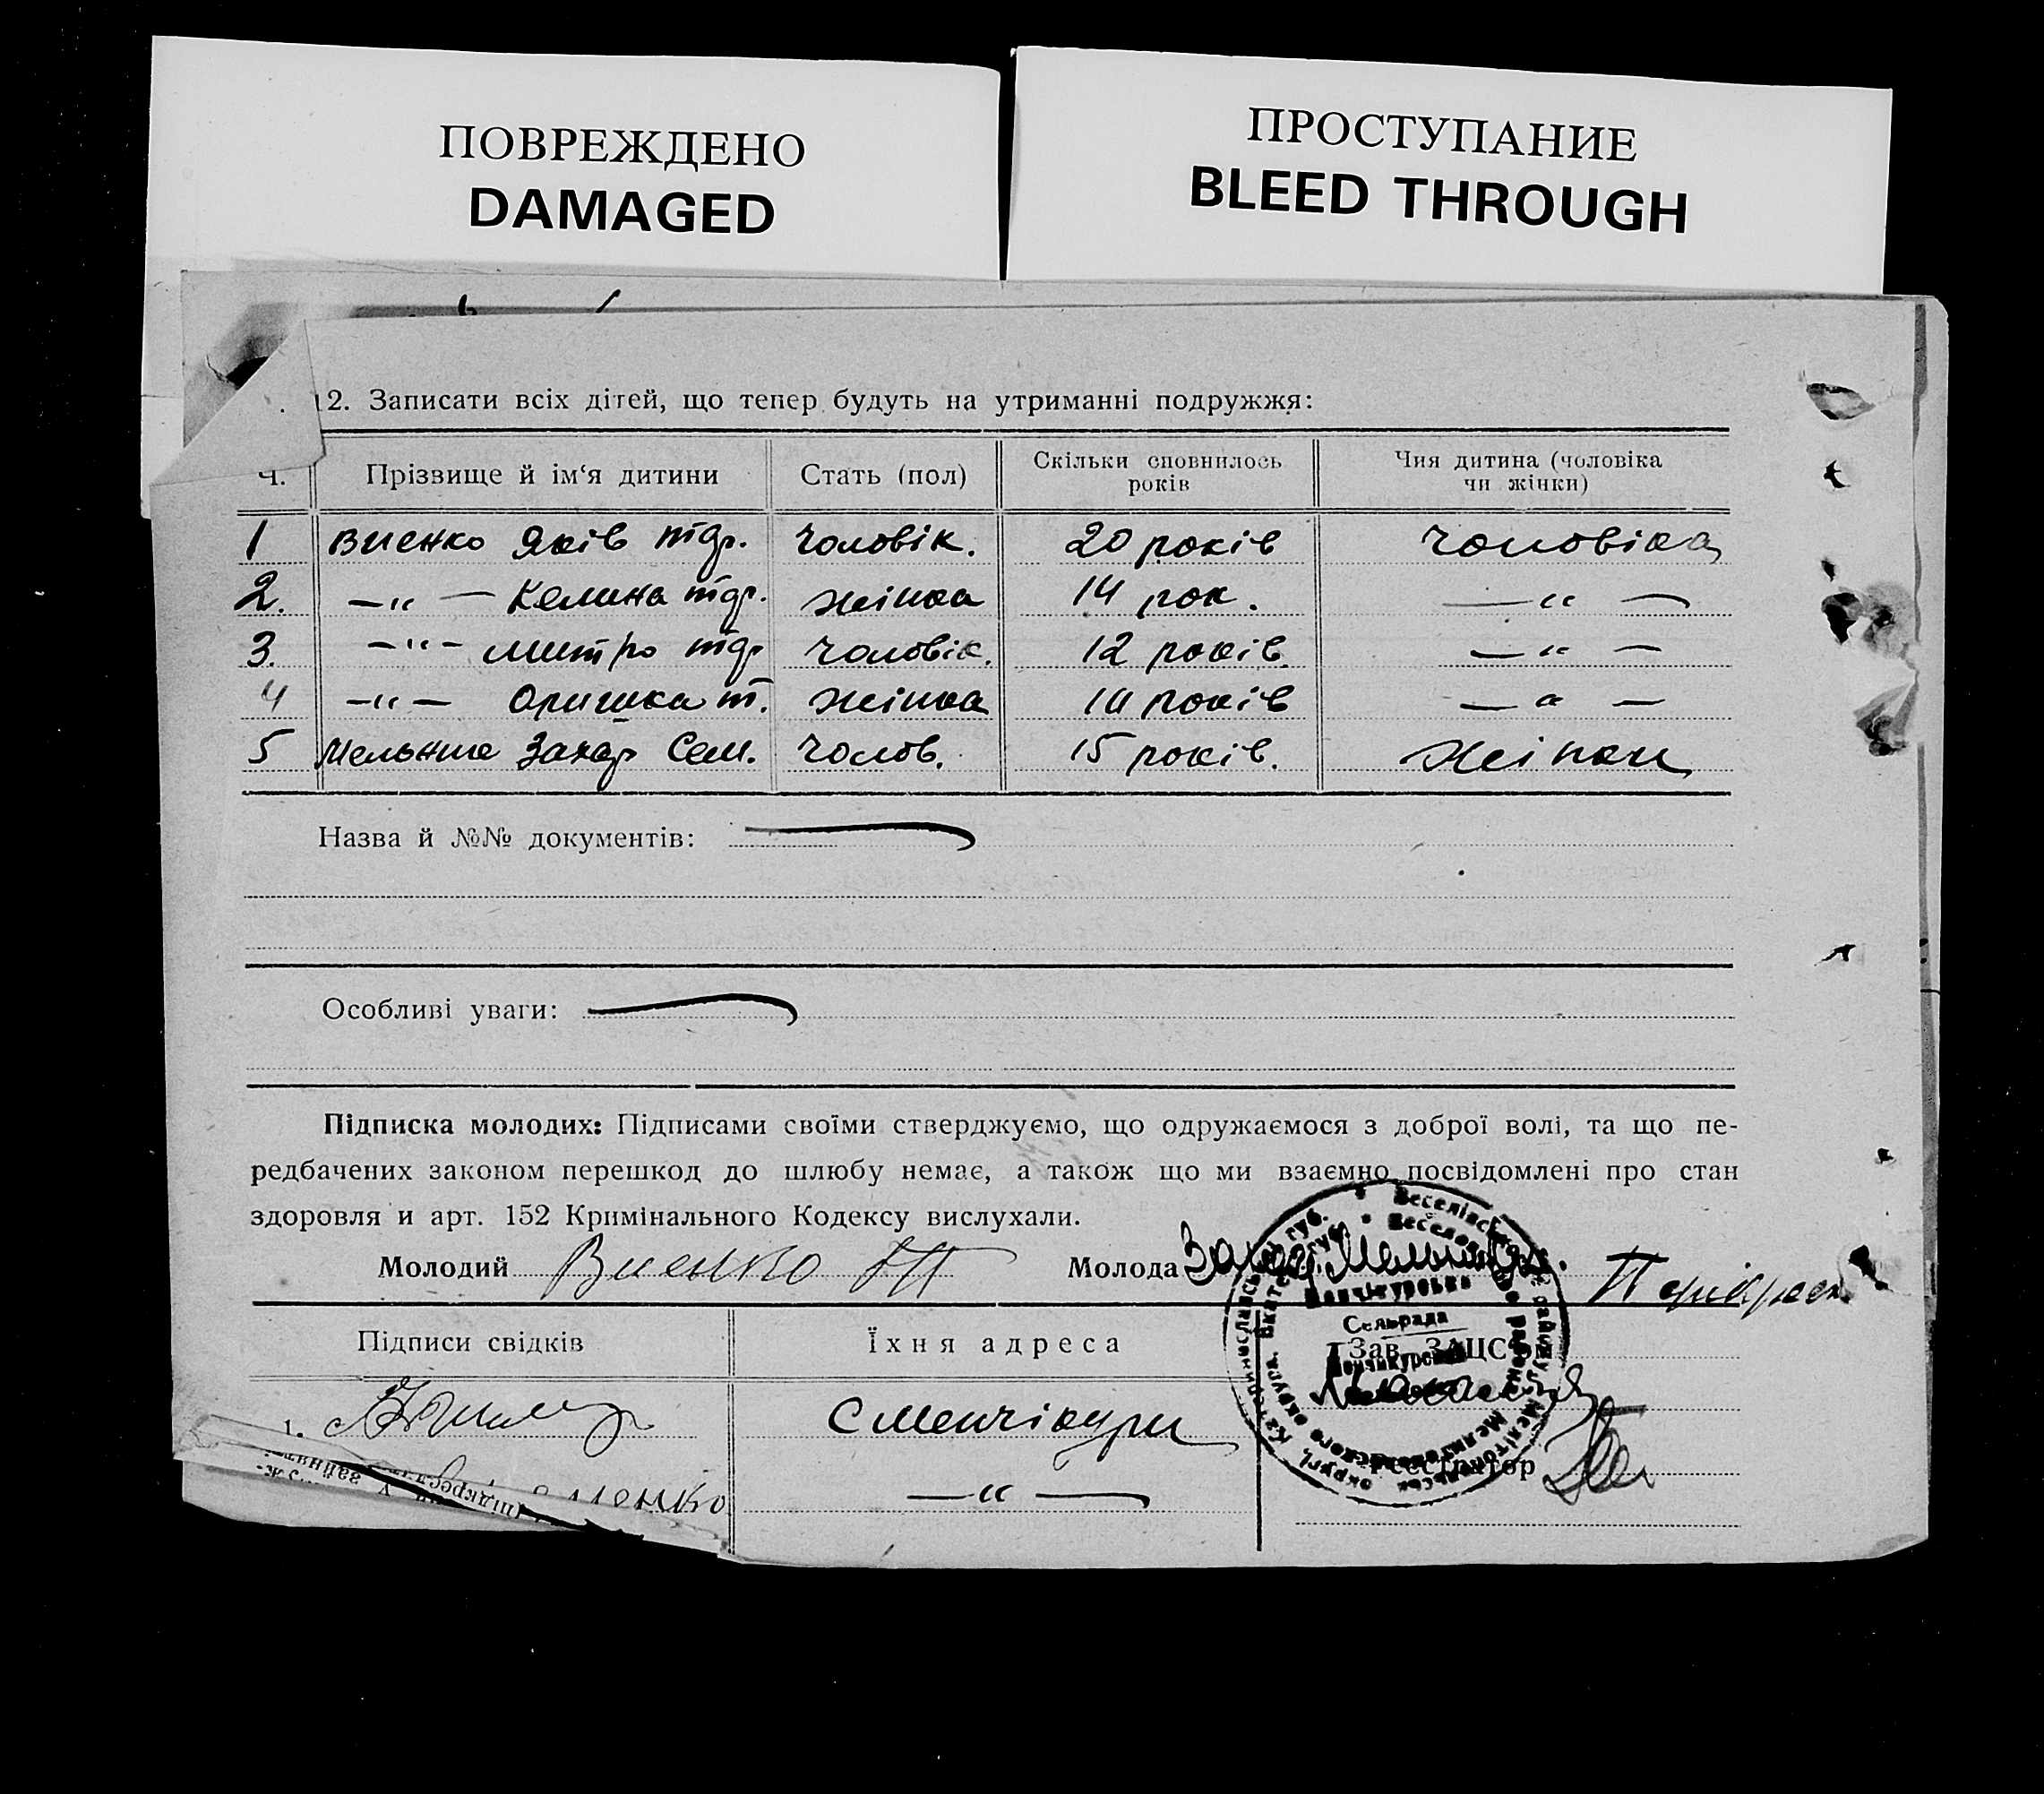 ПОВРЕЖДЕНО
DAMAGED
ПРОСТУПАНИЕ
BLEED THROUGH
12. Записати всіх дітей, що тепер будуть на утриманні подружжя:
Ч. Прізвище й ім‘я дитини Стать (пол) Скільки сповнилось років Чия дитина (чоловіка чи жінки)
1 Яків тдр. чоловік. 20 років чоловіка
2. —„— Келина тдр. жінка 14 рок. —„—
3. —„— Митро тдр чоловік. 12 років. —„—
4 —„— Оришка т. жінка років —„—
5 Захар Сем. чолов. 15 років. жінки
Назва й №№ документів:
Особливі уваги:
Підписка молодих: Підписами своїми стверджуємо, що одружаємося з доброї волі, та що пе-
редбачених законом перешкод до шлюбу немає, а також що ми взаємно посвідомлені про стан
здоровля и арт. 152 Кримінального Кодексу вислухали.
Молодий Молода
Підписи свідків Їхня адреса Зав. ЗАЦС
1. С Менчікури
—„—
Реєстратор
Сельрада